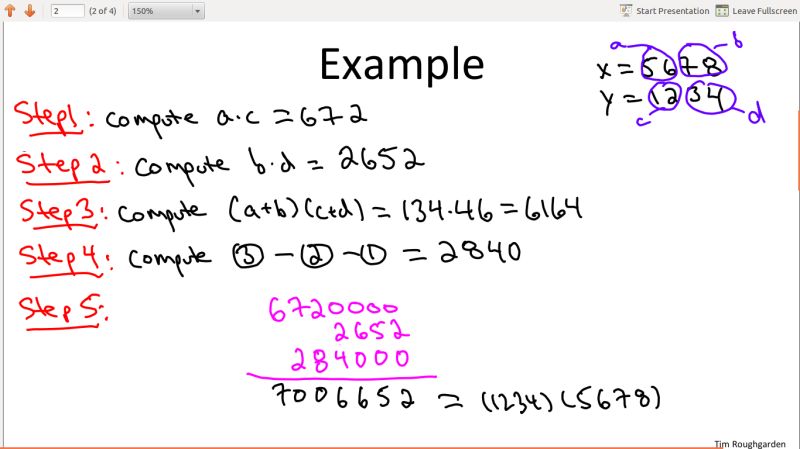 2 (2 of 4) 150% Start Presentation Leave Fullscreen
Example
a b
x = 5678
y = 1234
c d
Step1: compute a·c = 672
Step 2: compute b·d = 2652
Step3: compute (a+b)(c+d) = 134·46 = 6164
Step 4: compute ③ - ② - ① = 2840
Step 5:
6720000
2652
284000
7006652 = (1234)(5678)
Tim Roughgarden